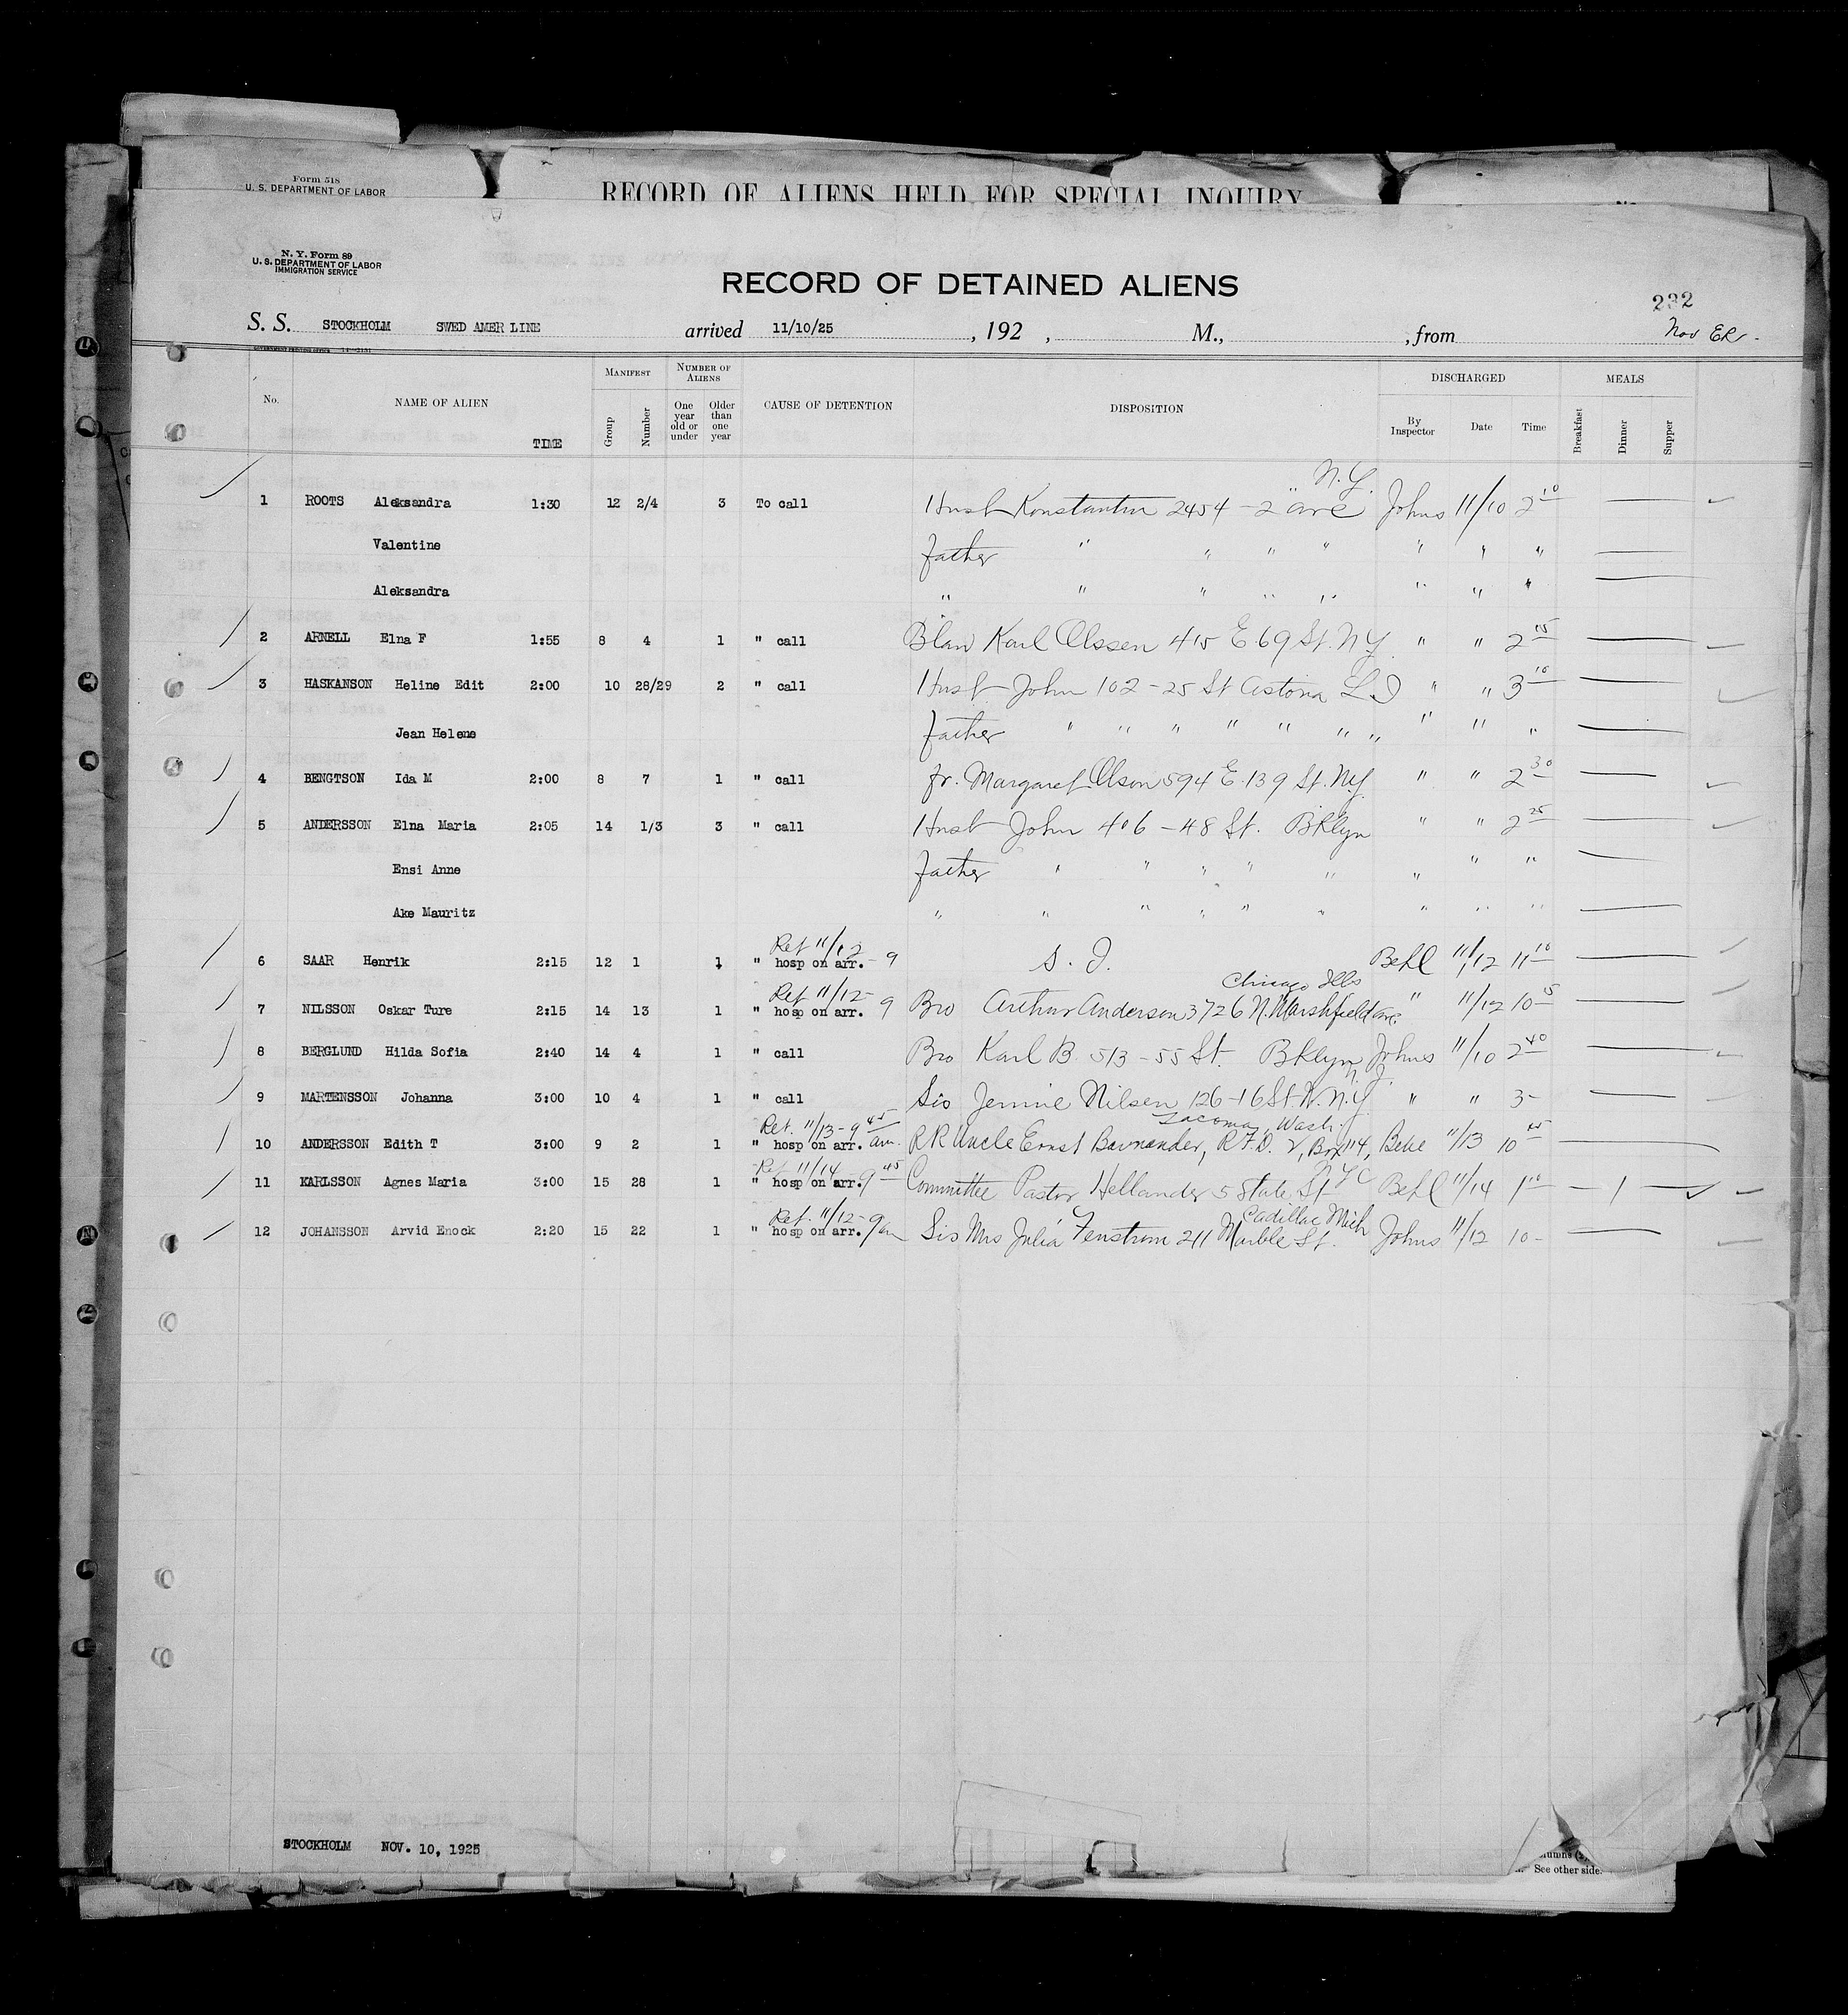 Form 518
U. S. DEPARTMENT OF LABOR
RECORD OF ALIENS HELD FOR SPECIAL INQUIRY
N. Y. Form 89
U. S. DEPARTMENT OF LABOR
IMMIGRATION SERVICE
RECORD OF DETAINED ALIENS
232
S. S. STOCKHOLM SWED AMER LINE arrived 11/10/25 , 192 , M., , from Nov ER.
No. NAME OF ALIEN TIME MANIFEST Group Number NUMBER OF ALIENS One year old or under Older than one year CAUSE OF DETENTION DISPOSITION DISCHARGED By Inspector Date Time MEALS Breakfast Dinner Supper
N.Y.
1 ROOTS Aleksandra 1:30 12 2/4 3 To call Husb Konstantin 2454 - 2" ave Johns 11/10 2 10
Valentine father " " " " " " "
Aleksandra " " " " " " " "
2 ARNELL Elna F 1:55 8 4 1 " call Blaw Karl Olssen 415 E. 69 St. N Y " " 2 15
3 HASKANSON Heline Edit 2:00 10 28/29 2 " call Husb John 102-25 St Astoria L I " " 3 10
Jean Helene father " " " " " " " " " "
4 BENGTSON Ida M 2:00 8 7 1 " call fr. Margaret Olson 594 E. 139 St. N.Y. " " 2 30
5 ANDERSSON Elna Maria 2:05 14 1/3 3 " call Husb John 406-48 St. Bklyn " " 2 25
Ensi Anne father " " " " " " " "
Ake Mauritz " " " " " " " " "
Ret 11/12 - 9
6 SAAR Henrik 2:15 12 1 1 " hosp on arr. S. I. Behl 11/12 11 10
Ret 11/12 - 9 Chicago Ills
7 NILSSON Oskar Ture 2:15 14 13 1 " hosp on arr. Bro Arthur Anderson 3726 N. Marshfield ave. " 11/12 10 15
8 BERGLUND Hilda Sofia 2:40 14 4 1 " call Bro Karl B. 513-55 St. Bklyn Johns 11/10 2 40
9 MARTENSSON Johanna 3:00 10 4 1 " call Sis Jennie Nilsen 126-16 St. W. N.Y. " " 3-
Ret. 11/13 - 9 45 am. Tacoma, Wash.
10 ANDERSSON Edith T 3:00 9 2 1 " hosp on arr. RR Uncle Ernst R.F.D. 2, Box 11/13 10 45
Ret 11/14 - 9 45
11 KARLSSON Agnes Maria 3:00 15 28 1 " hosp on arr. Committee Pastor Hellander 5 State St N Y C Behl 11/14 1 10 1
Ret. 11/12 - 9 am Cadillac Mich
12 JOHANSSON Arvid Enock 2:20 15 22 1 " hosp on arr. Sis Mrs Julia Fenstrom 211 Marble St. Johns 11/12 10-
STOCKHOLM NOV. 10, 1925
See other side.